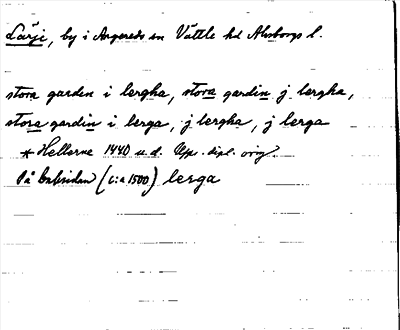 Lärje, by i Angereds sn Vättle hd Älvsborgs l.
stora garden i lergha, stora gardin j lergha,
stora gardin i lerga, j lergha, j lerga
* Hellerne 1440 u.d. Upp. dipl. orig.
På baksidan (c:a 1500) lerga